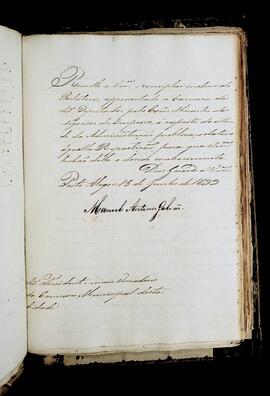 Remetto a Vmces o exemplar incluso do
Relatorio appresentado a Camara dos
Sres Deputados pelo Exmo Ministro dos
Negocios do Imperio, á respeito do estado
da Administração publica, relativo
áquella Repartição, para que Vmces
tenhão della o devido conhecimento.
Deos Guarde a Vmces
Porto Alegre 13 de Junho de 1833
Manoel Antonio Galvão
Sres Presidente e mais Vereadores
da Camara Municipal desta
Cidade